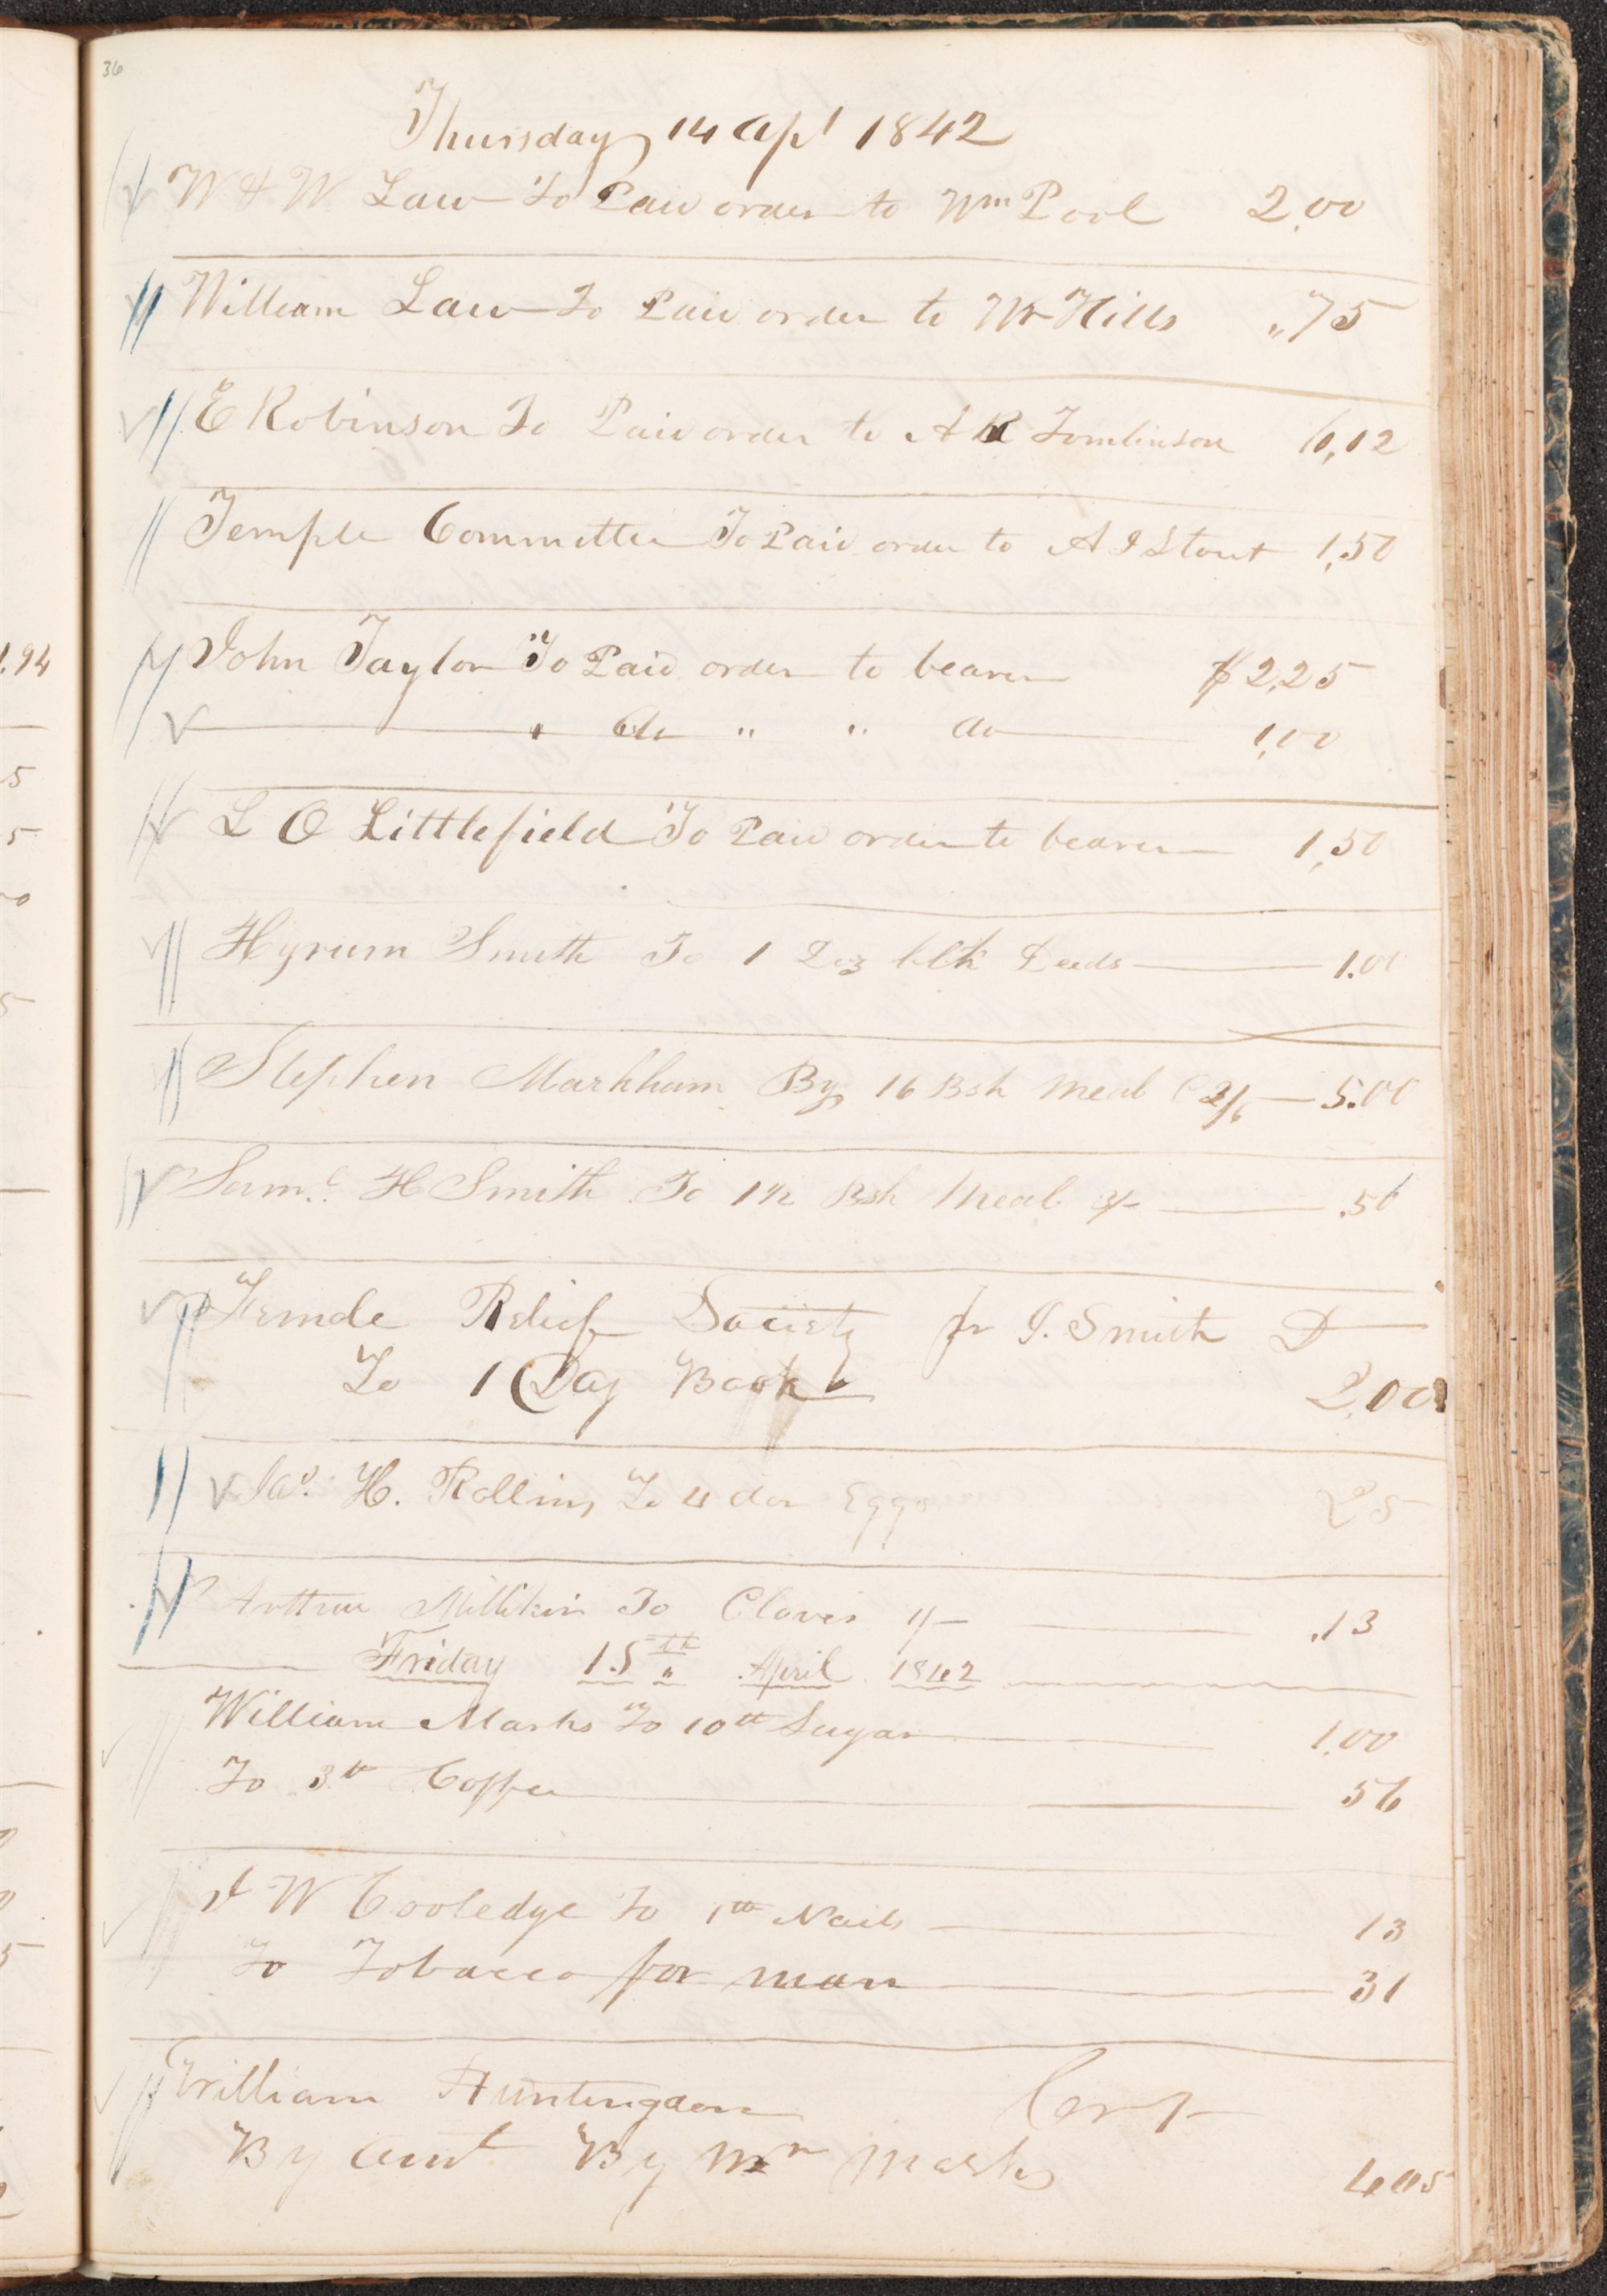 36
Thursday 14 Apl 1842
W & W Law To Paid order to Wm Pool 2,00
William Law To Paid order to Wm Hills ,,75
E Robinson To Paid order to A R Tomlinson 6,12
Temple Committee To Paid order to A J Stout 1,50
1,94
John Taylor To Paid order to bearer $2,25
" do " " do 1,00
5
L O Littlefield To Paid order to bearer 1,50
5
Hyrum Smith To 1 Doz blk Deeds 1.00
5
Stephen Markham By 16 Bsh Meal @ 2/6 5.00
Saml. H Smith To 1 1/2 Bsh Meal 3/- .56
Female Relief Society pr J. Smith D
To 1 Day Book 2,00
Jas. H. Rollins To 4 doz Eggs 25
Arthur Millikin To Cloves 1/- .13
Friday 15th " April 1842
William Marks To 10tt Sugar 1.00
To 3tt Coffee 56
J W Cooledge To 1tt Nails 13
To Tobacco for man 31
William Huntingdon Cr
By amt By Mr Marks 4 05